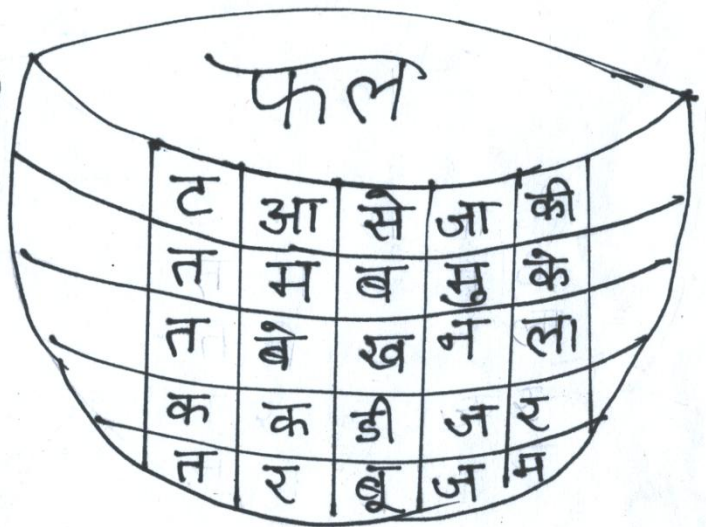 फल
ट आ से जा की
त म ब मु के
त बे ख न ला
क क डी ज र
त र बू ज म